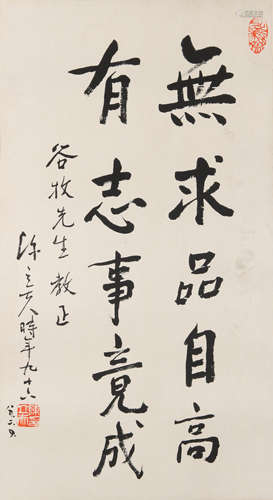 無求品自高
有志事竟成
谷牧先生教正
陳立夫時年九十六